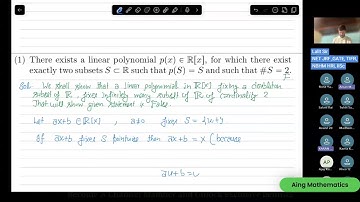 (1) There exists a linear polynomial p(x) ∈ ℝ[x], for which there exist
exactly two subsets S ⊂ ℝ such that p(S) = S and such that #S = 2.
Sol: We shall show that a linear polynomial in ℝ[x] fixing a
subset of ℝ, fixes infinitely many subset of ℝ of cardinality 2
That will show given statement is false.
Let ax+b ∈ ℝ[x], a≠0 fixes S =
If ax+b fixes S pointwise then ax+b = x (because
au+b=u
Aing Mathematics
Lalit Sir
NET JRF, GATE, TIFR,
NBHM